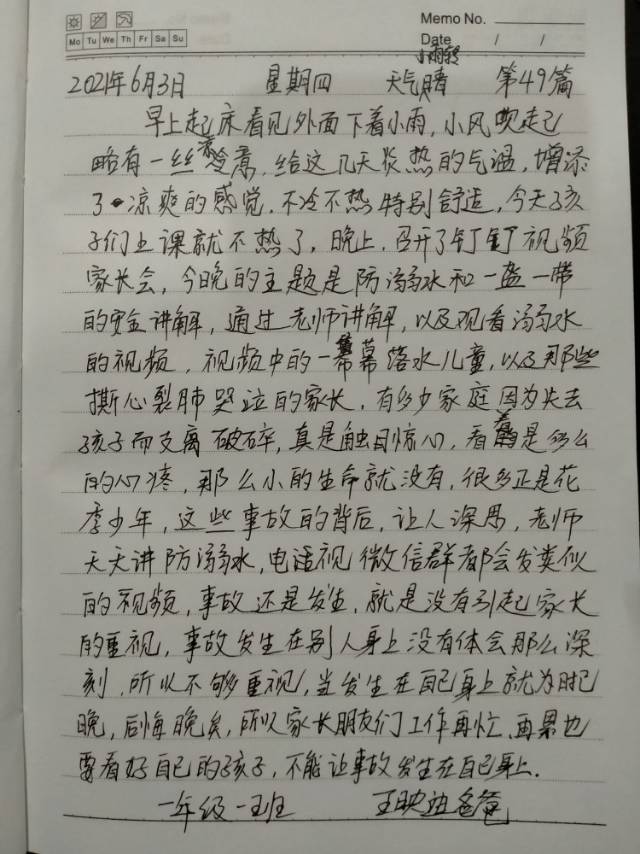 Memo No.
Mo Tu We Th Fr Sa Su
Date / /
小雨转
2021年6月3日 星期四 天气晴 第49篇
早上起床看见外面下着小雨,小风吹起
略有一丝凉意,给这几天炎热的气温,增添
了凉爽的感觉,不冷不热特别舒适,今天孩
子们上课就不热了,晚上,召开了钉钉视频
家长会,今晚的主题是防溺水和一盔一带
的安全讲解,通过老师讲解,以及观看溺水
的视频,视频中的一幕幕落水儿童,以及那些
撕心裂肺哭泣的家长,有多少家庭因为失去
孩子而支离破碎,真是触目惊心,看着是多么
的心疼,那么小的生命就没有,很多正是花
季少年,这些事故的背后,让人深思,老师
天天讲防溺水,电话视微信群都会发类似
的视频,事故还是发生,就是没有引起家长
的重视,事故发生在别人身上没有体会那么深
刻,所以不够重视,当发生在自己身上就为时已
晚,后悔晚矣,所以家长朋友们工作再忙、再累也
要看好自己的孩子,不能让事故发生在自己身上.
一年级一班 王映迪爸爸